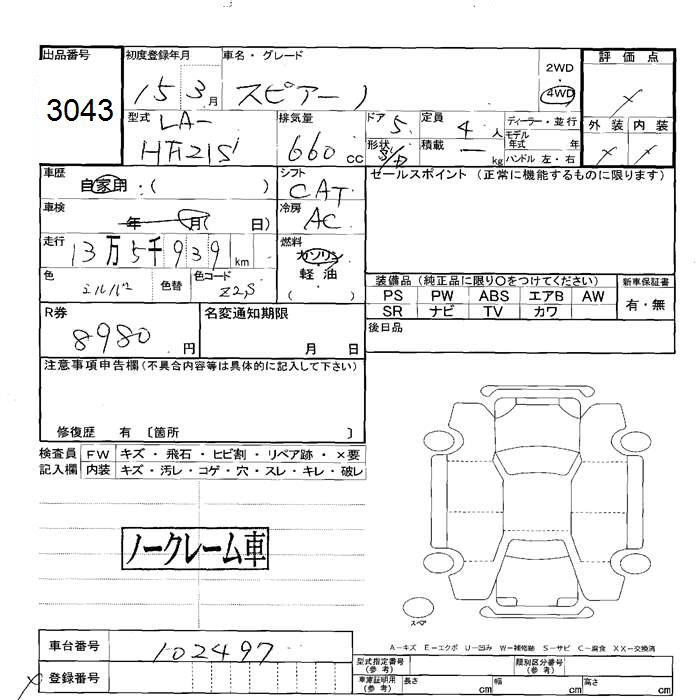 出品番号 初度登録年月 車名・グレード 評価点
3043 15 3月 スピアーノ 2WD・4WD
外装 内装
型式 LA- 排気量 ドア 5 定員 4人 ディーラー・並行
HF21S 660cc 形状 積載 ー kg モデル年式 年
ハンドル 左・右
車歴 自家用・( ) シフト CAT セールスポイント (正常に機能するものに限ります)
車検 年 月( 日) 冷房 AC
走行 13万5千939km 燃料 ガソリン
軽油
( )
色 シルバー 色替 色コード Z2S
装備品 (純正品に限り○をつけてください) 新車保証書
PS PW ABS エアB AW 有・無
SR ナビ TV カワ
R券 8980円 名変通知期限 月 日
後日品
注意事項申告欄(不具合内容等は具体的に記入して下さい)
修復歴 有 〔箇所 〕
検査員 FW キズ・飛石・ヒビ割・リペア跡・×要
記入欄 内装 キズ・汚レ・コゲ・穴・スレ・キレ・破レ
ノークレーム車
スペア
A-キズ E-エクボ U-凹み W-補修跡 S-サビ C-腐食 XX-交換済
車台番号 102497
型式指定番号(参考) 類別区分番号(参考)
登録番号
車庫証明用(参考) 長さ cm 幅 cm 高さ cm